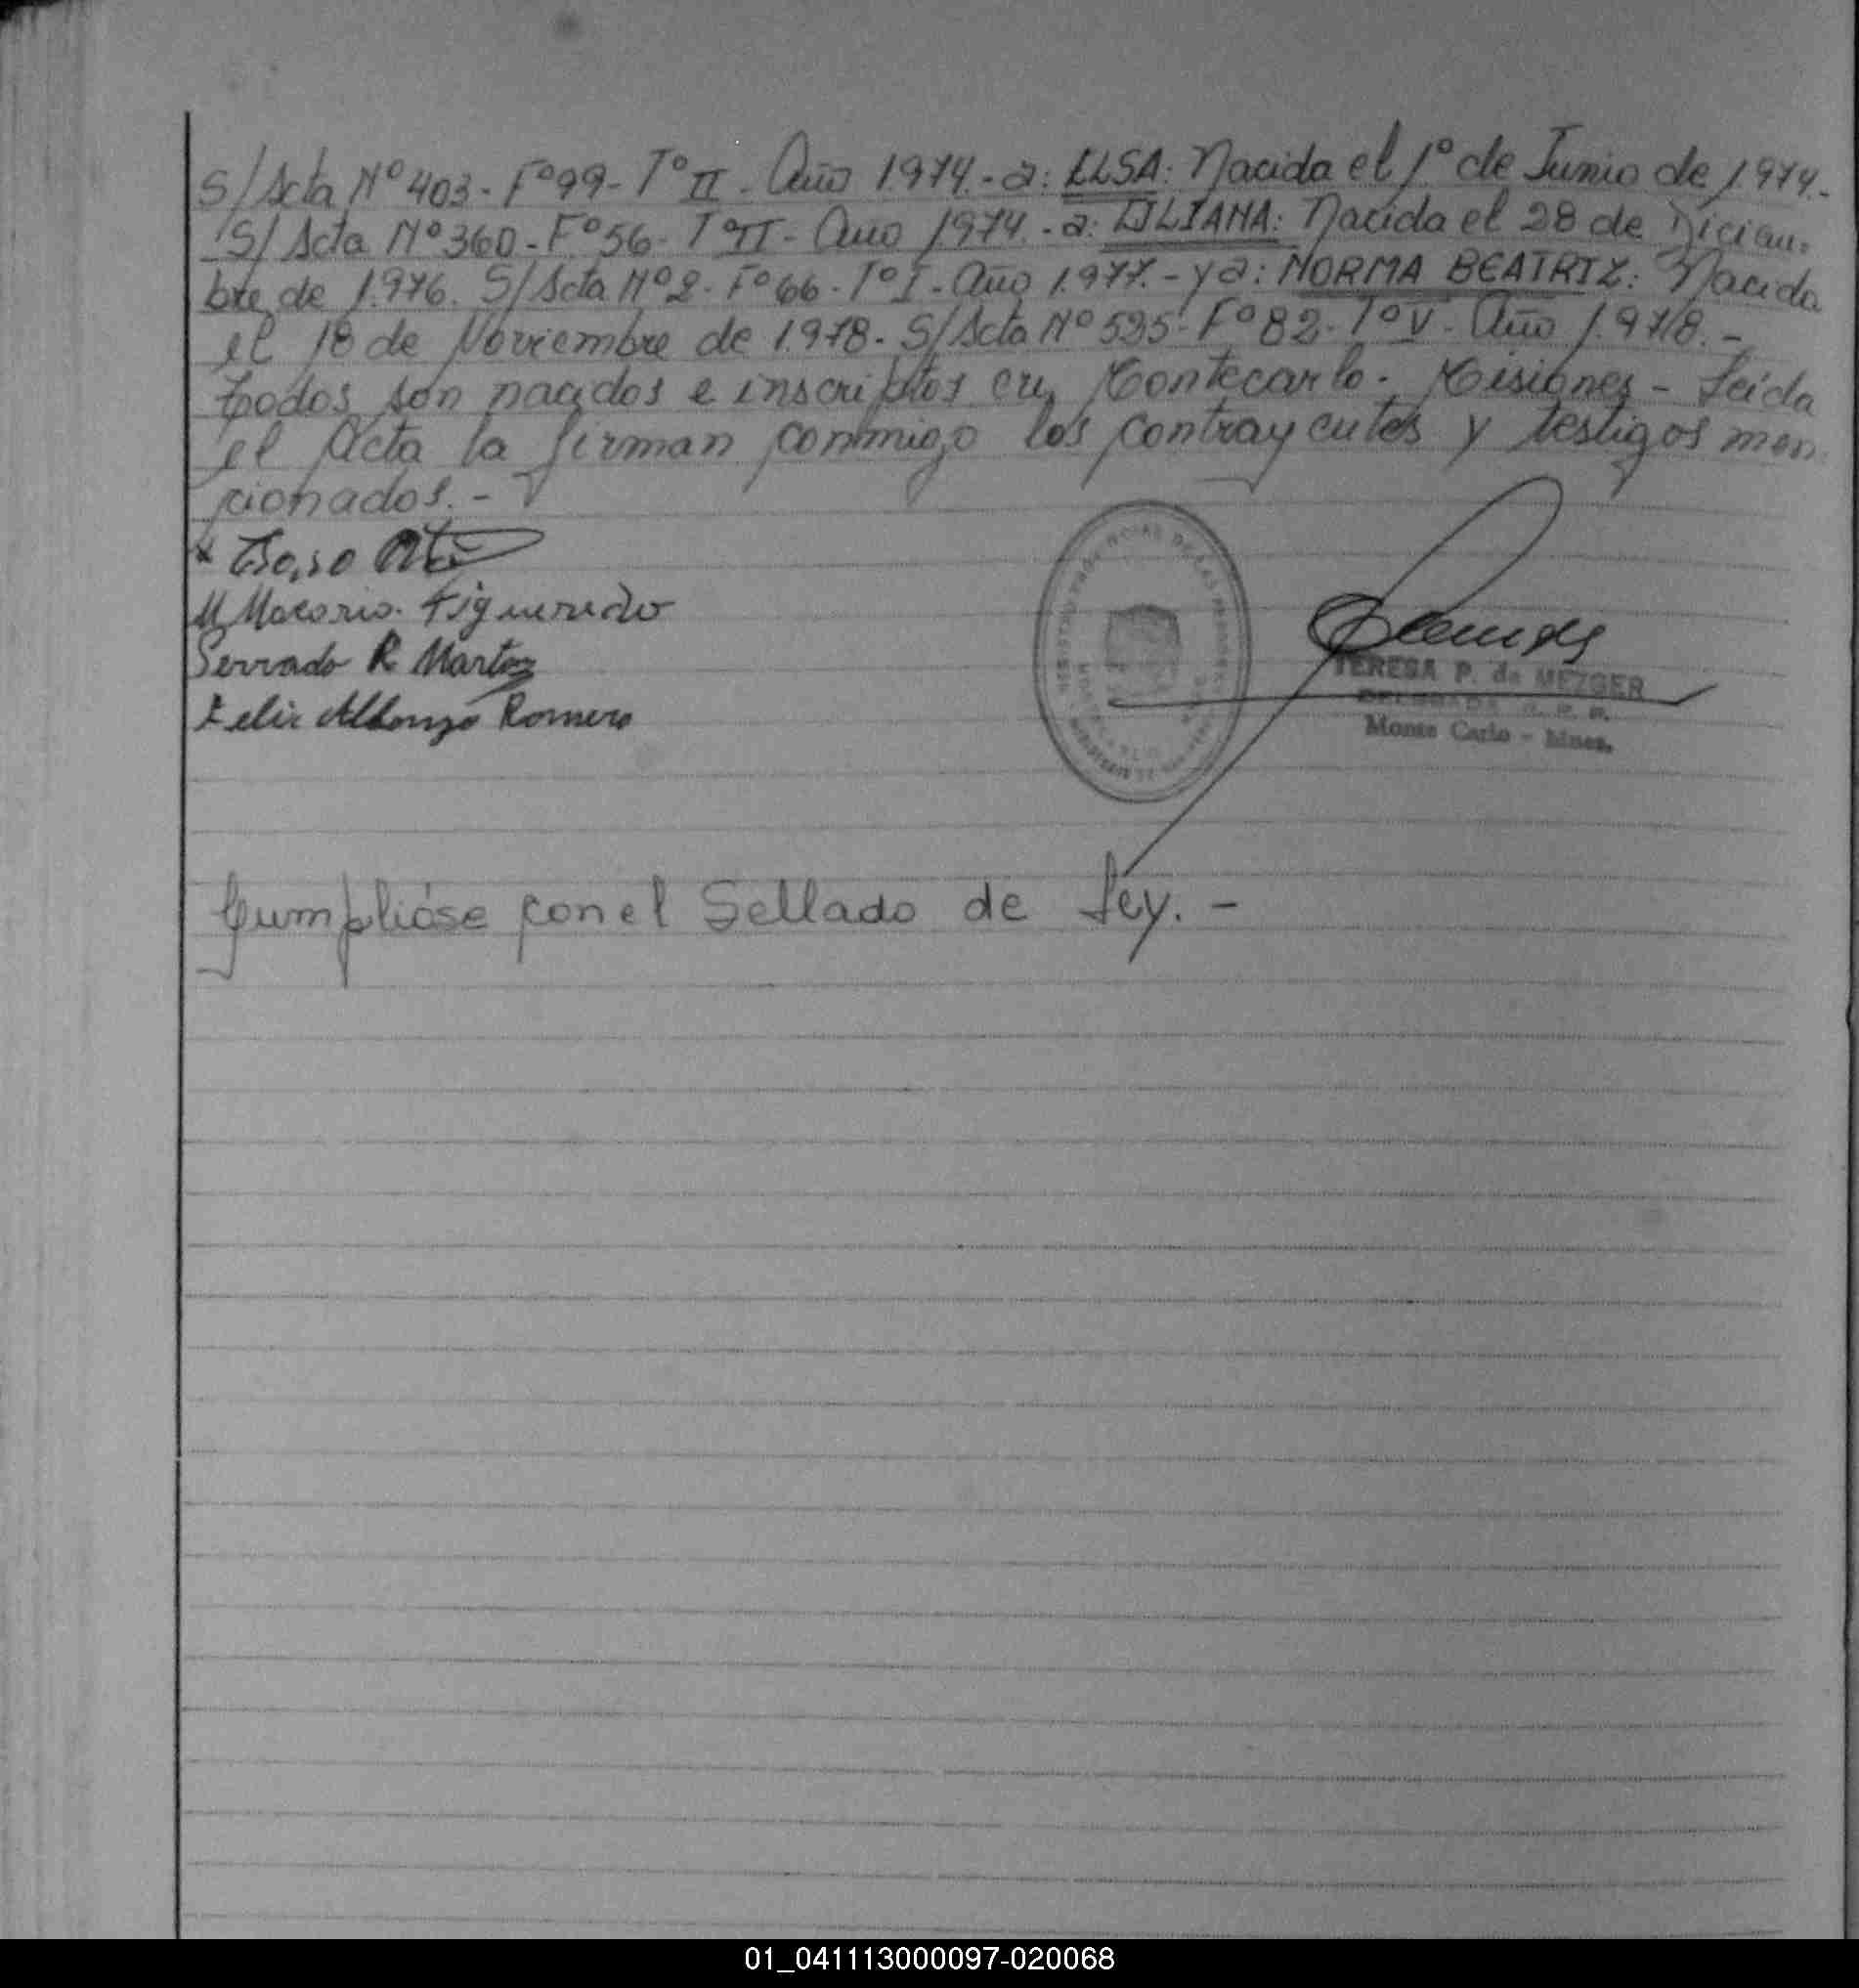 S/Acta Nº 403- Fº 99- Tº II - Año 1.974.- a: ELSA: Nacida el 1º de Junio de 1.974.-
S/ Acta Nº 360- Fº 56- Tº II - Año 1.974.- a: LILIANA: Nacida el 28 de Diciem-
bre de 1.976. S/Acta Nº 2- Fº 66- Tº I- Año 1.977.- y a: NORMA BEATRIZ: Nacida
el 18 de Noviembre de 1.978. S/Acta Nº 535- Fº 82- Tº V- Año 1.978.-
todos son nacidos e inscriptos en Montecarlo- Misiones- Leída
el Acta la firman conmigo los contrayentes y testigos men
cionados.-
M Macario. Figueredo
Serrado R Martez
Felix Alfonzo Romero
TERESA P. de MEZGER
DELEGADA R. P. P.
Monte Carlo - Mnes.
Cumplióse con el Sellado de Ley.-
01_041113000097-020068